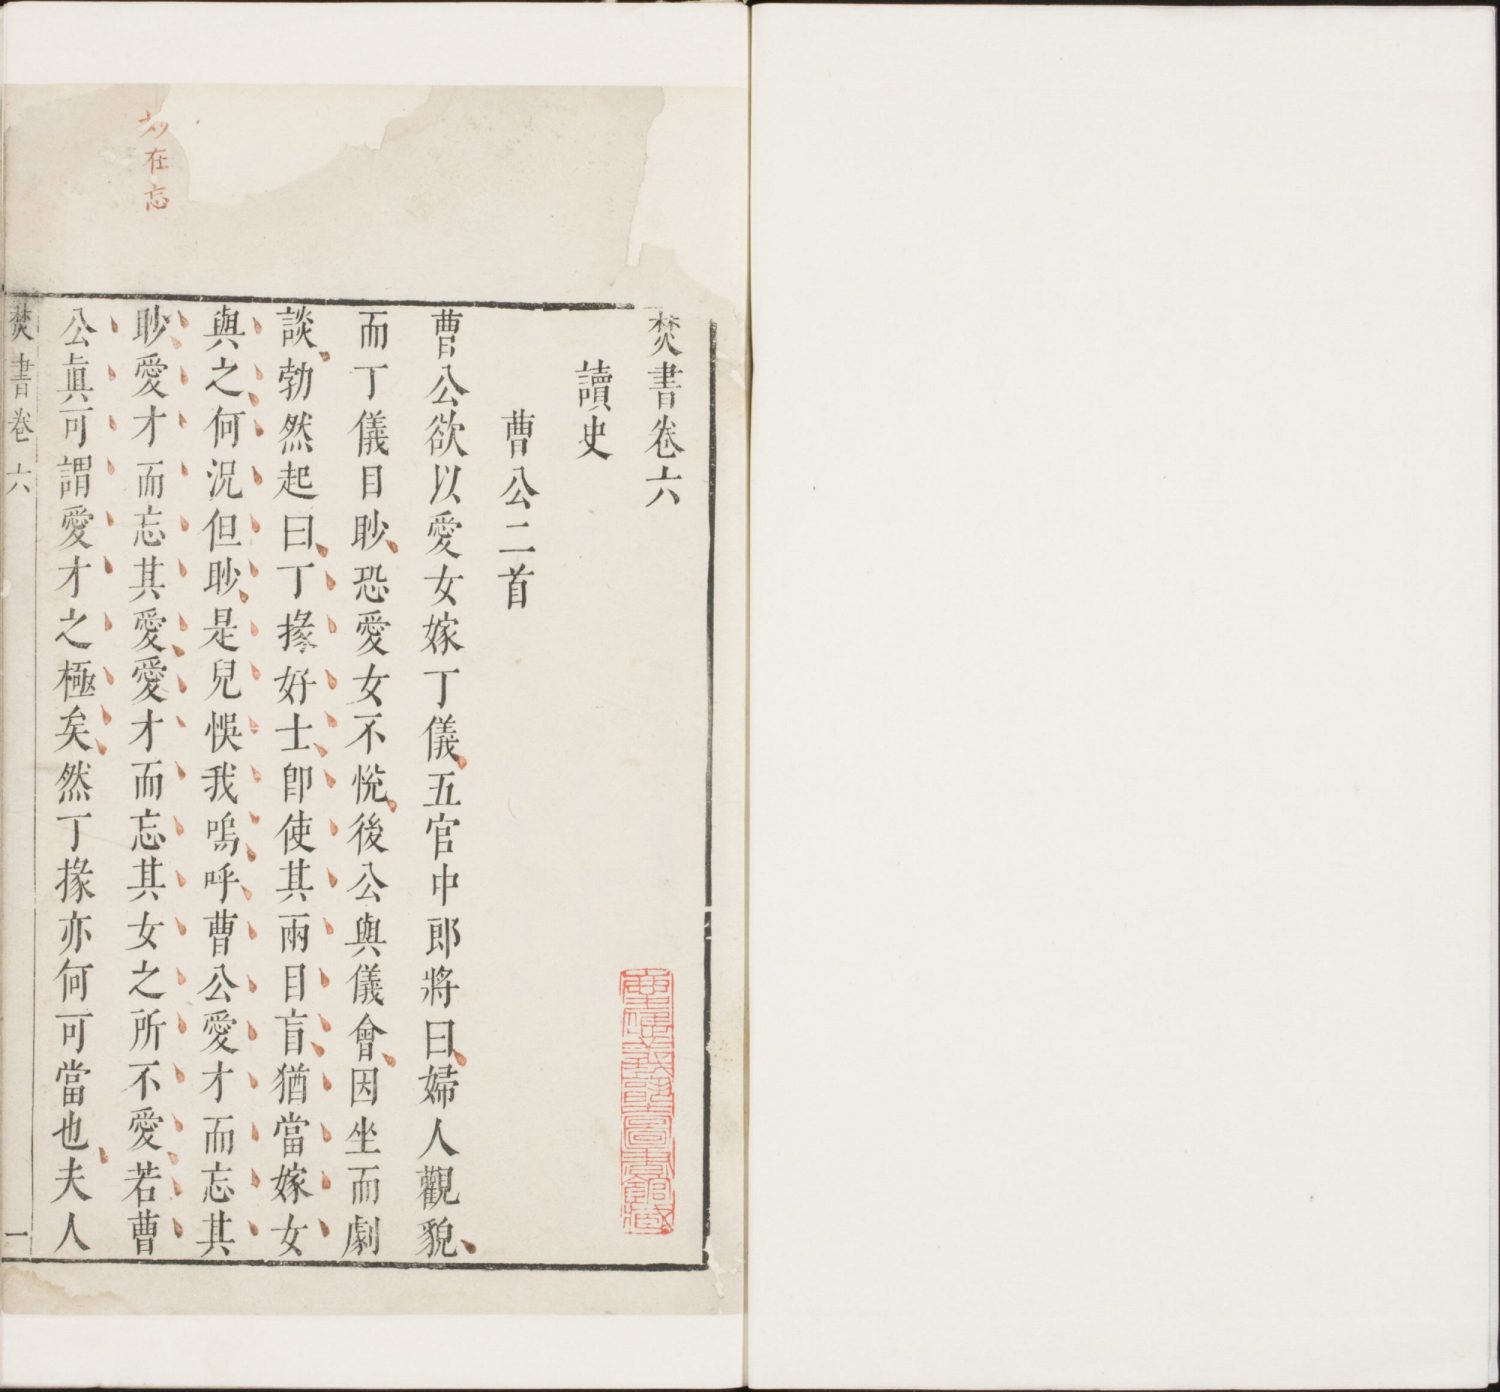 焚書卷六
讀史
曹公二首
曹公欲以愛女嫁丁儀五官中郎將曰婦人觀貌
而丁儀目眇恐愛女不悅後公與儀會因坐而劇
談勃然起曰丁掾好士即使其兩目盲猶當嫁女
與之何況但眇是兒悞我嗚呼曹公愛才而忘其
眇愛才而忘其愛愛才而忘其女之所不愛若曹
公眞可謂愛才之極矣然丁掾亦何可當也夫人
焚書卷六
一
妙在忘